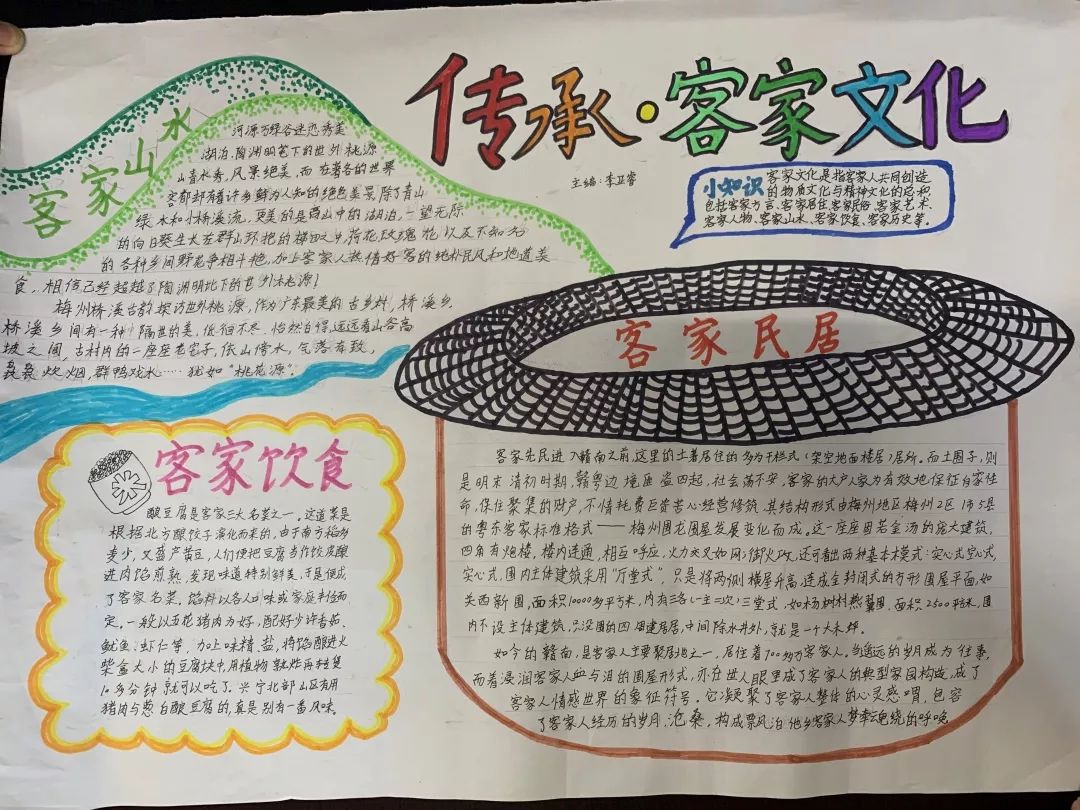 传承·客家文化
主编:李卫睿
小知识
客家文化是指客家人共同创造
的物质文化与精神文化的总和
包括客家方言、客家居住、客家民俗、客家艺术、
客家人物、客家山水、客家饮食、客家历史等。
客家山水
河源万绿谷迷恋秀美
湖泊,陶渊明笔下的世外桃源
山青水秀,风景绝美,而在著名的世界
客都却有着许多鲜为人知的绝色美景,除了青山
绿水和小桥溪流,更美的是山中的湖泊,一望无际
的向日葵生长在群山环抱的梯田之中,荷花玫瑰花以及不知名
的各种乡间野花争相斗艳,加上客家人热情好客的纯朴民风和地道美
食,相信已经超越了陶渊明北下的世外桃源!
梅州桥溪古韵探访世外桃源,作为广东最美的古乡村,桥溪乡,
桥溪乡间有一种隔世的美,低徊不尽,怡然自得,远远看山谷高
坡之间,古村内的一座座老宅子,依山傍水,气落有致,
袅袅炊烟,群鸭戏水……犹如“桃花源”。
客家民居
客家先民进入赣南之前,这里的土著居住的多为干栏式(架空地面楼居)居所。而土围子,则
是明末清初时期,赣粤边境匪盗四起,社会荡不安,客家的大户人家为有效地保证自家性
命,保住聚集的财产,不惜耗费巨资苦心经营修筑,其结构形式由梅州地区梅州2区
的粤东客家标准格式——梅州围龙围屋发展变化而成。这一座座固若金汤的庞大建筑,
四角有炮楼,楼内连通,相互呼应,火力交叉如网;御火攻,还可看出两种基本术模式:实心式空心式,
实心式,围内主体建筑采用“厅堂式”,只是将两侧横屋升高,连成全封闭式的方形围屋平面,如
关西新围,面积10000多平方米,内有三各(一主二次)三堂式,如杨树村燕翼围,面积2500平方米,围
内不设主体建筑,只沿围的四周建房居,中间除水井外,就是一个大禾坪。
如今的赣南,是客家人主要聚居地之一,居住着700多万客家人。当遥远的岁月成为往事,
而着浸润客家人血与泪的围屋形式,亦在世人眼里成了客家人的典型家园构造,成了
客家人情感世界的象征符号。它凝聚了客家人整体的心灵感喟,包容
了客家人经历的岁月沧桑,构成飘泊他乡客家人梦牵魂绕的呼唤
客家饮食
米
酿豆腐是客家三大名菜之一。这道菜是
根据北方酿饺子演化而来的,由于南方稻多
麦少,又盛产黄豆,人们便把豆腐当作饺皮酿
进肉馅煎熟,发现味道特别鲜美,于是便成
了客家名菜。馅料以各人口味或家庭丰俭而
定,一般以五花猪肉为好,配好少许香菇、
鱿鱼、虾仁等,加上味精、盐,将馅酿进火
柴盒大小的豆腐块中,用植物熟炸再转煲
10多分钟就可以吃了。兴宁北部山区有用
猪肉与葱白酿豆腐的,真是别有一番风味。